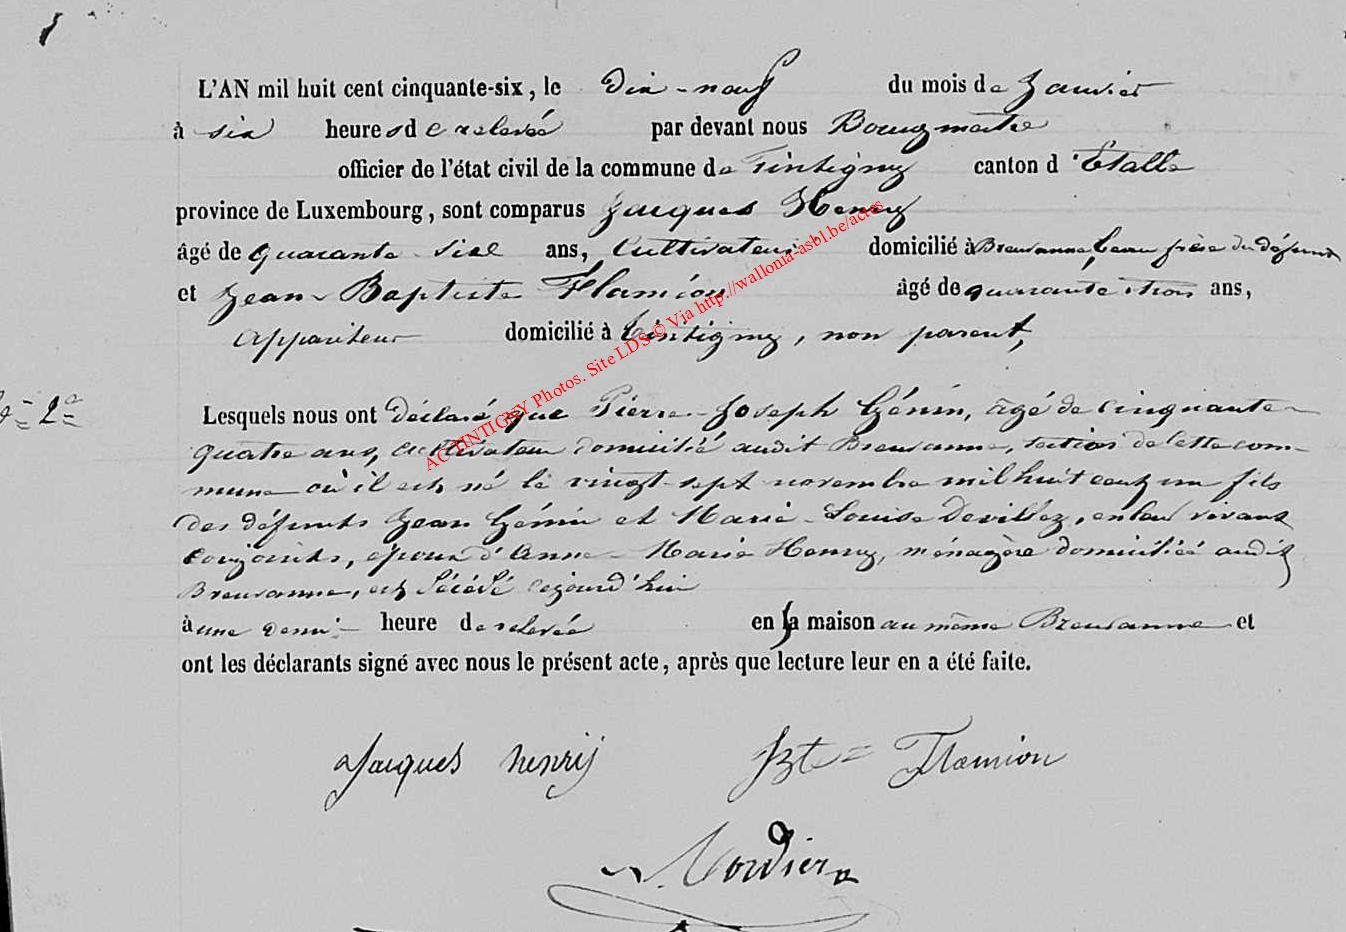 L'AN mil huit cent cinquante-six, le Dix-neuf du mois de Janvier
à six heures de relevée par devant nous Bourgmestre
officier de l'état civil de la commune de Tintigny canton d'Etalle
province de Luxembourg, sont comparus Jacques Henry
âgé de quarante six ans, Cultivateur domicilié à Breuvanne, beau frère du défunt
et Jean-Baptiste Flamion âgé de quarante trois ans,
appariteur domicilié à Tintigny, non parent,
Lesquels nous ont Déclaré que Pierre-Joseph Génin, âgé de cinquante
quatre ans, cultivateur domicilié audit Breuvanne, section de cette com-
mune où il est né le vingt-sept novembre mil huit cent un fils
des défunts Jean Génin et Marie-Louise Devillez, en leur vivant
conjoints, époux d'Anne-Marie Henry, ménagère domiciliée audit
Breuvanne, est décédé cejourd'hui
à une demi heure de relevée en sa maison au même Breuvanne et
ont les déclarants signé avec nous le présent acte, après que lecture leur en a été faite.
Jacques henrij JBte Flamion
ACTINTIGNY Photos. Site LDS © Via http://wallonia-asbl.be/actes